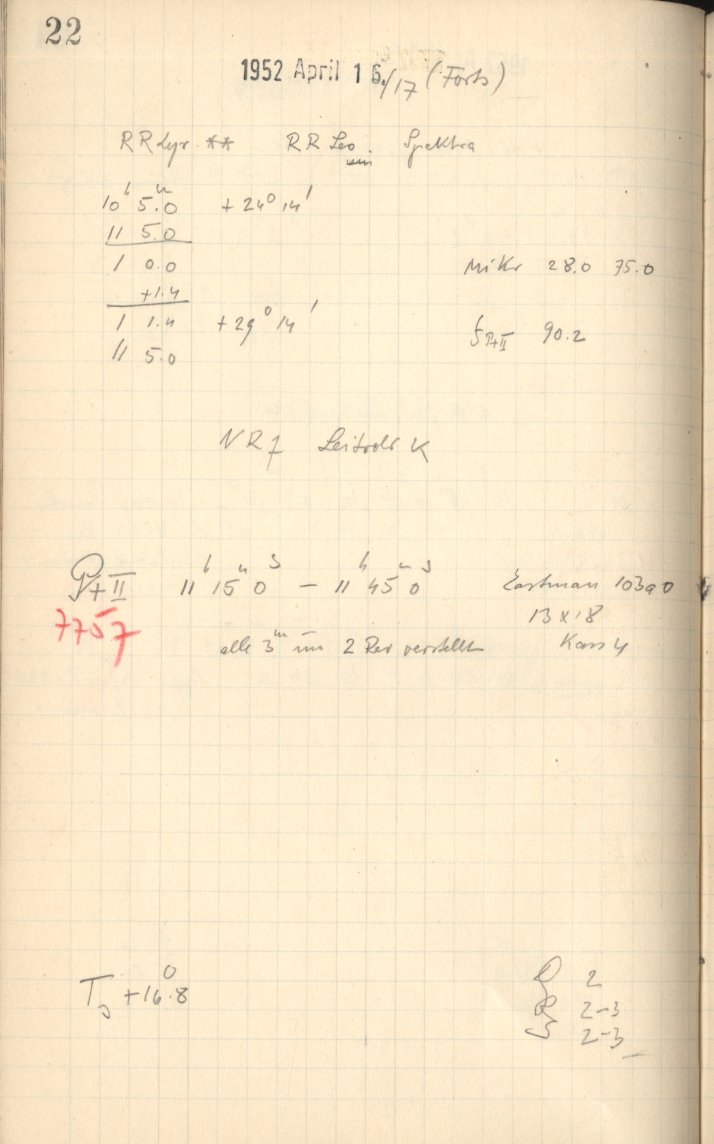 22
1952 April 16./17 (Forts)
RR Lyr ** RR Leo Spektra
10 h 5.0 m + 24° 14'
11 5.0
1 0.0
+1.4
Mikr 28.0 75.0
1 1.4 + 29° 14'
11 5.0
f P+II 90.2
NR 7 Leitrohr K
P+II 11 h 15 m 0 s – 11 h 45 m 0 s Eastman 103a0
7757
13 x 18
alle 3 m um 2 Rev verstellt Kass 4
T +16.8°
2
R 2-3
S 2-3